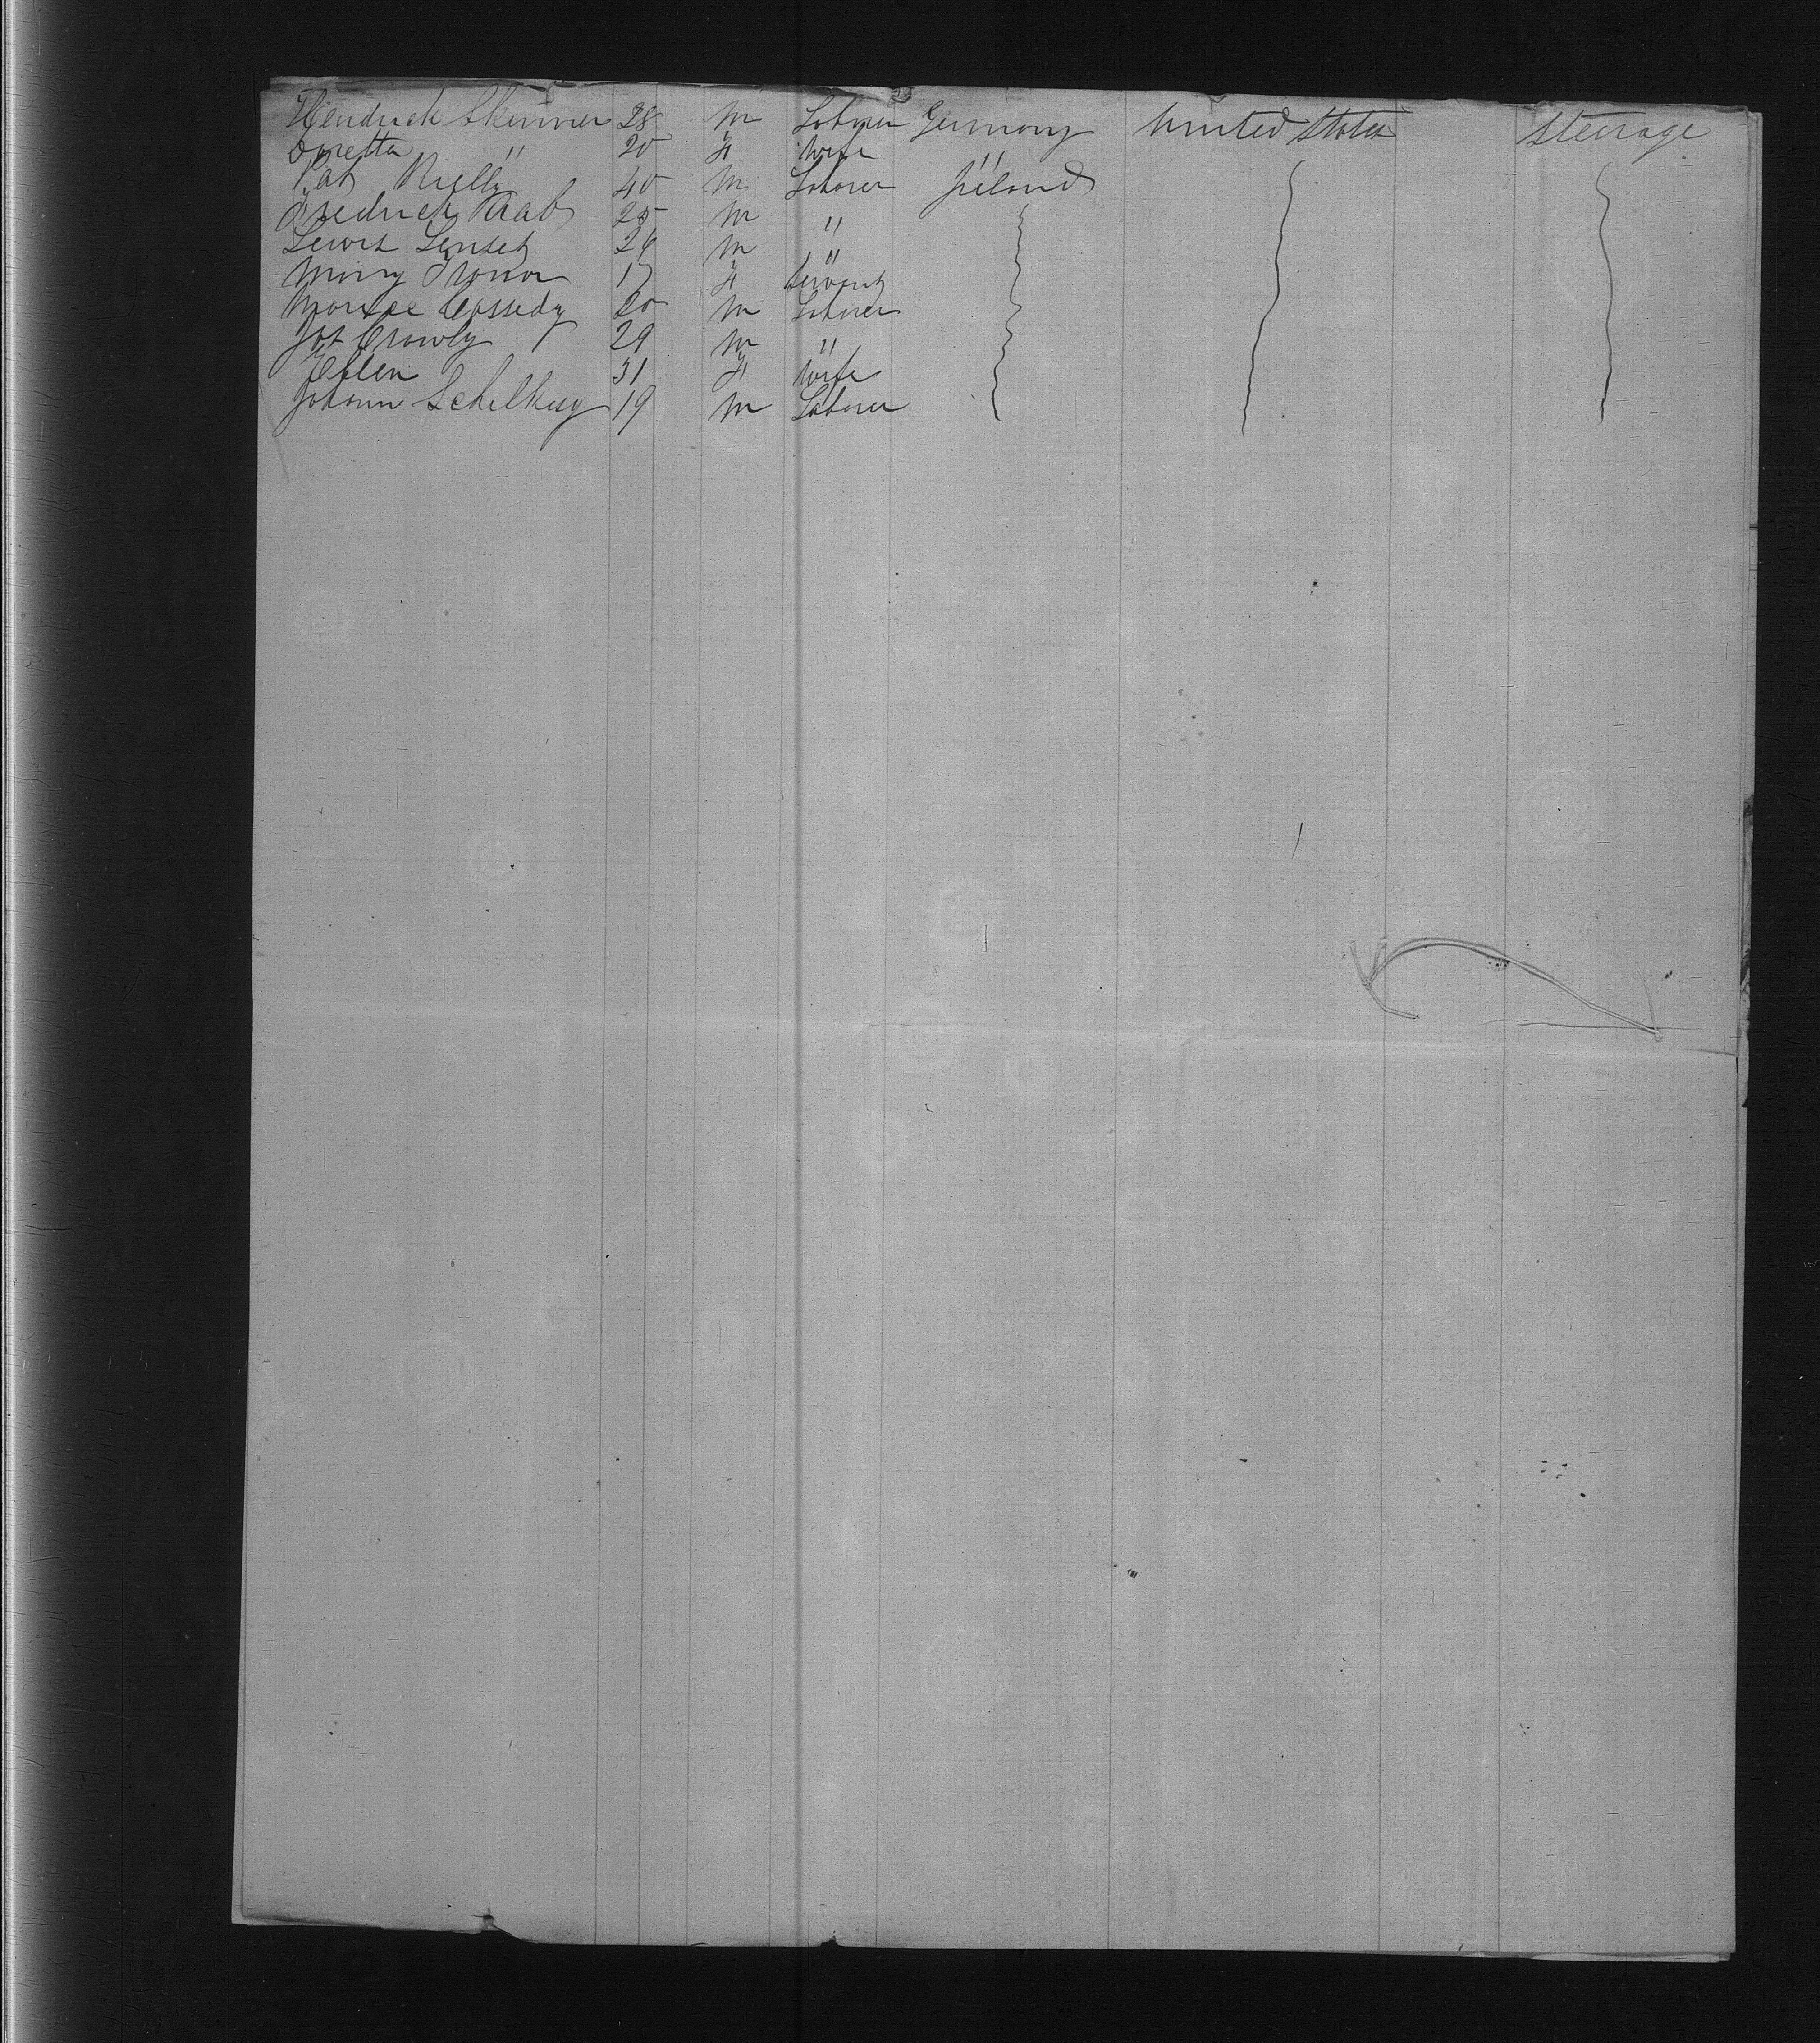 Hendrick Skinner 28 M Laborer Germany United States Steerage
" 20 F Wife "
Pat Rielly 40 M Laborer Ireland
Fredrick Raab 25 M "
Lewis 26 M "
Mary 17 F Servant
Cassedy 20 M Laborer
Jas Crowly 29 M "
Ellen 31 F Wife
Johann 19 M Laborer